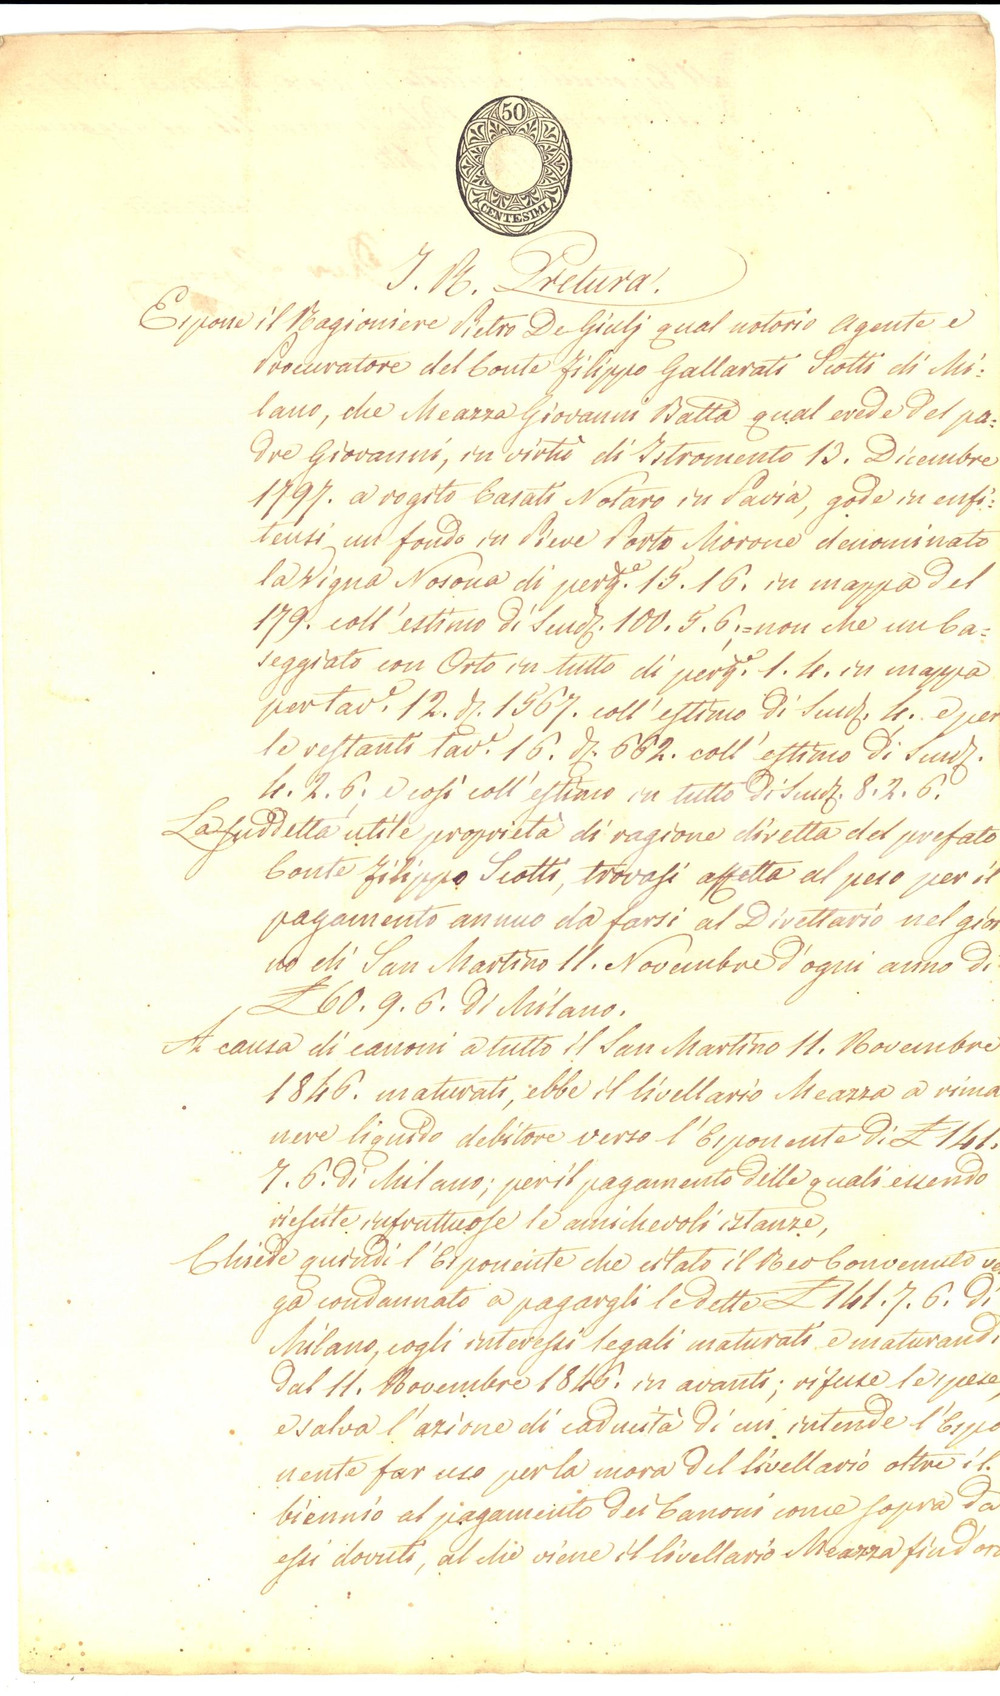 50
CENTESIMI
I. R. Pretura.
Espone il Ragioniere Pietro De Giulj qual notorio Agente e
Procuratore del Conte Filippo Gallarati Scotti di Mi:
lano, che Meazza Giovanni Batta qual erede del pa=
dre Giovanni, in virtù di Istromento 13. Dicembre
1797. a rogito Casati Notaro in Pavia, gode in enfi:
teusi un fondo in Pieve Porto Morone denominato
la Vigna Nosona di pertᵉ. 15. 16. in mappa del
179. coll' estimo di Scudi. 100. 5. 6, = non che un Ca=
seggiato con Orto in tutto di pertᵉ. 1. 4. in mappa
per tavᵉ. 12. d. 1567. coll' estimo di Scudi. 4. e per
le restanti tavᵉ. 16. d. 662. coll' estimo di Scudi.
4. 2. 6. e così coll' estimo in tutto di Scudi. 8. 2. 6.
La suddetta utile proprietà di ragione diretta del prefato
Conte Filippo Scotti, trovasi affetta al peso per il
pagamento annuo da farsi al Direttario nel gior
no di San Martino 11. Novembre d'ogni anno di
£ 60. 9. 6. di Milano.
A causa di canoni a tutto il San Martino 11. Novembre
1846. maturati, ebbe il livellario Meazza a rima
nere liquido debitore verso l'Esponente di £ 141.
7. 6. di Milano; per il pagamento delle quali essendo
riescite infruttuose le amichevoli istanze,
Chiede quindi l'Esponente che citato il Reo Convenuto ven
ga condannato a pagargli le dette £ 141. 7. 6. di
Milano, cogli interessi legali maturati e maturandi
dal 11. Novembre 1846. in avanti; rifuse le spese,
e salva l'azione di caducità di cui intende l'Espo
nente far uso per la mora del livellario oltre il
biennio al pagamento dei Canoni come sopra da
essi dovuti, al che viene il livellario Meazza find'ora